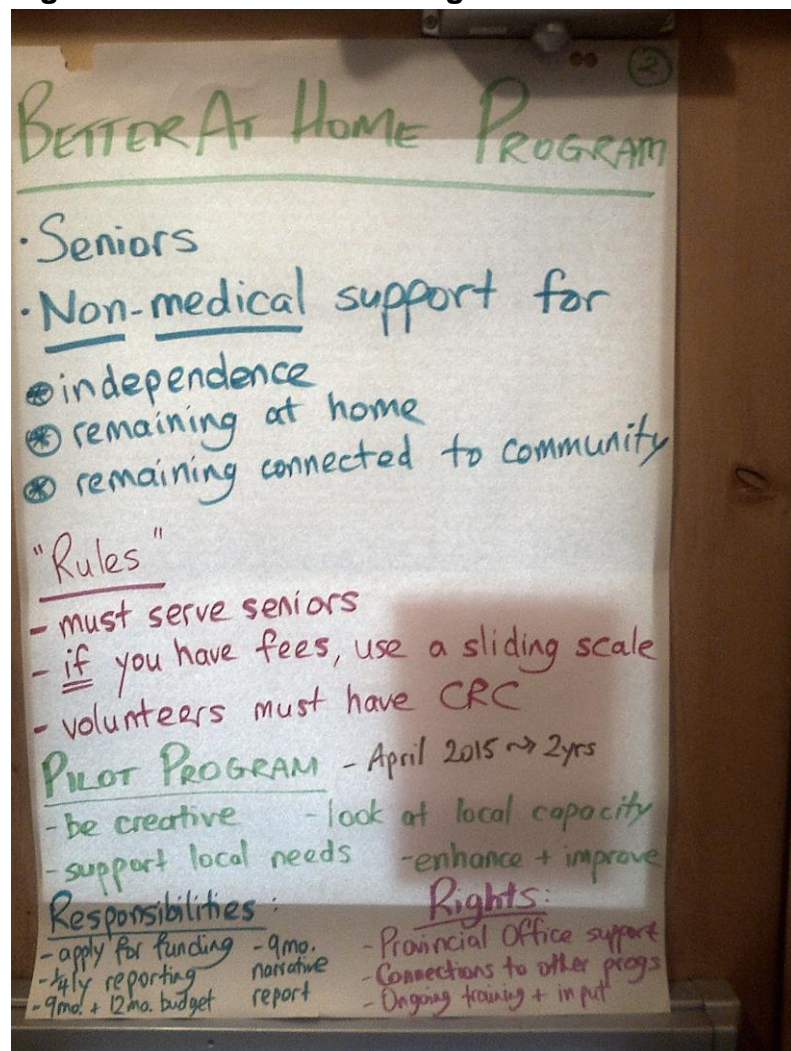 2
BETTER AT HOME PROGRAM
· Seniors
· Non-medical support for
independence
remaining at home
remaining connected to community
"Rules"
- must serve seniors
- if you have fees, use a sliding scale
- volunteers must have CRC
PILOT PROGRAM - April 2015 ⇝ 2yrs
- be creative - look at local capacity
- support local needs - enhance + improve
Responsibilities:
- apply for funding - 9mo.
- 1/4ly reporting narrative
- 9mo. + 12mo. budget report
Rights:
- Provincial Office support
- Connections to other progs
- Ongoing training + input